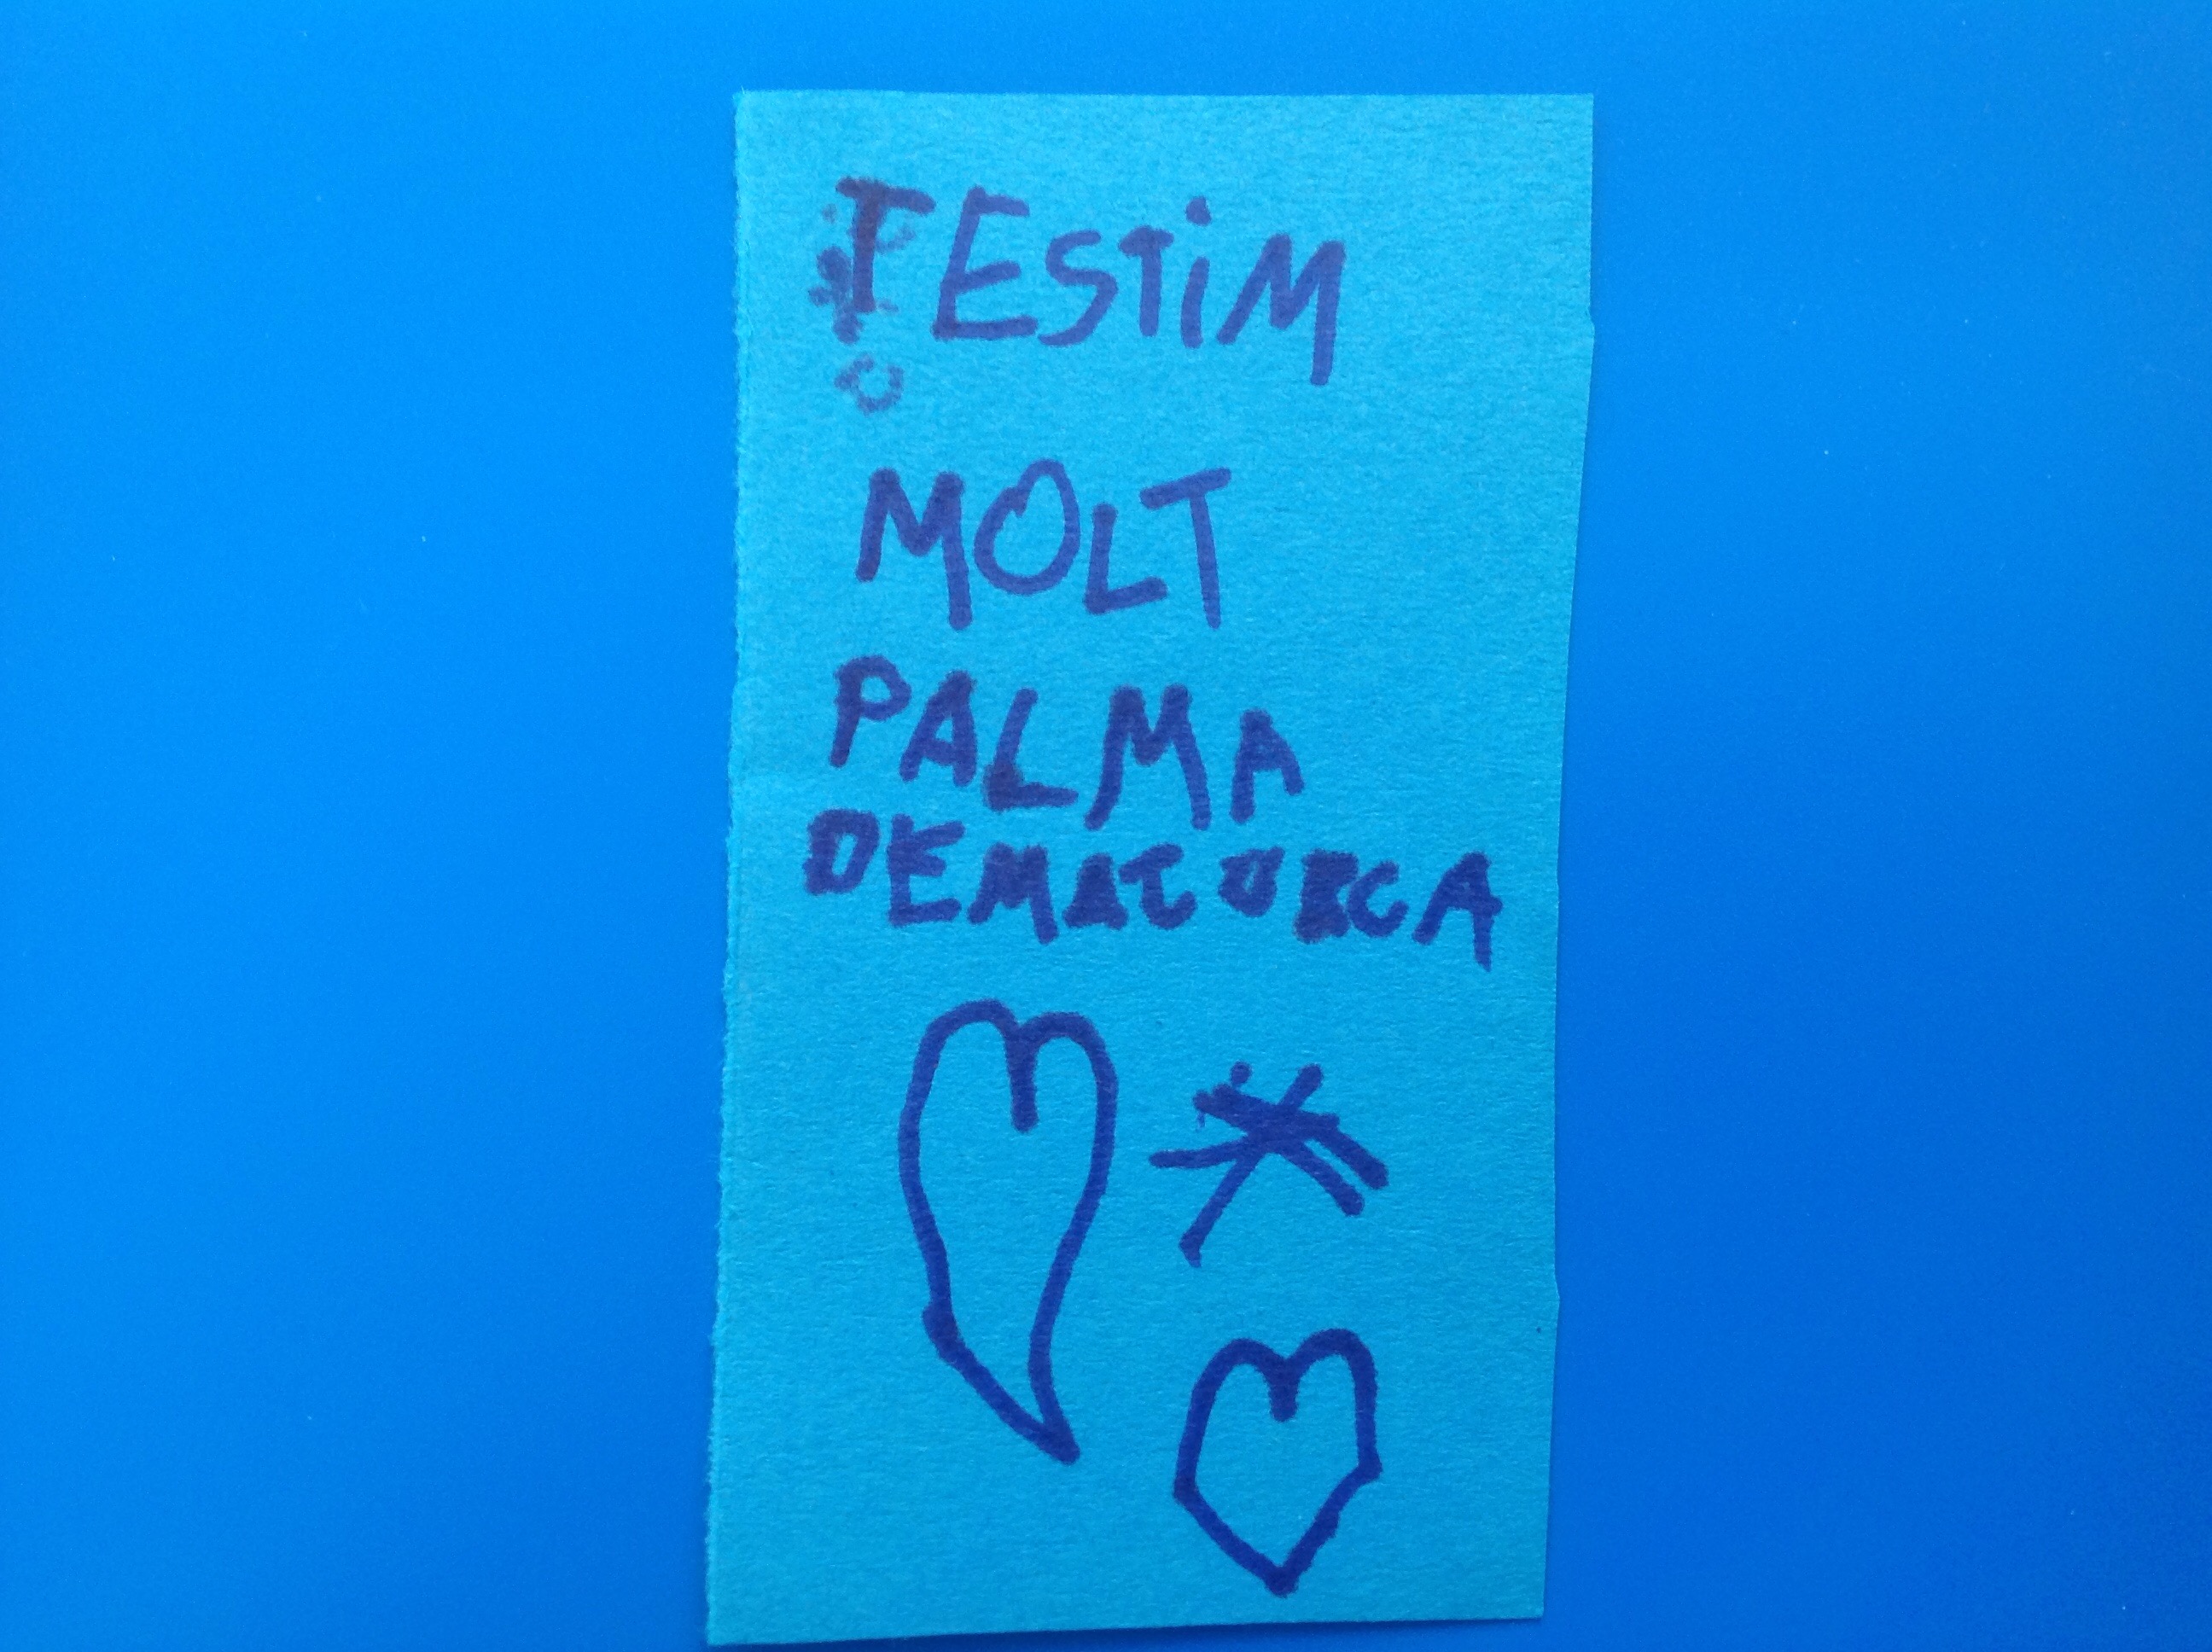 TESTiM
MOLT
PALMA
DEMALORCA